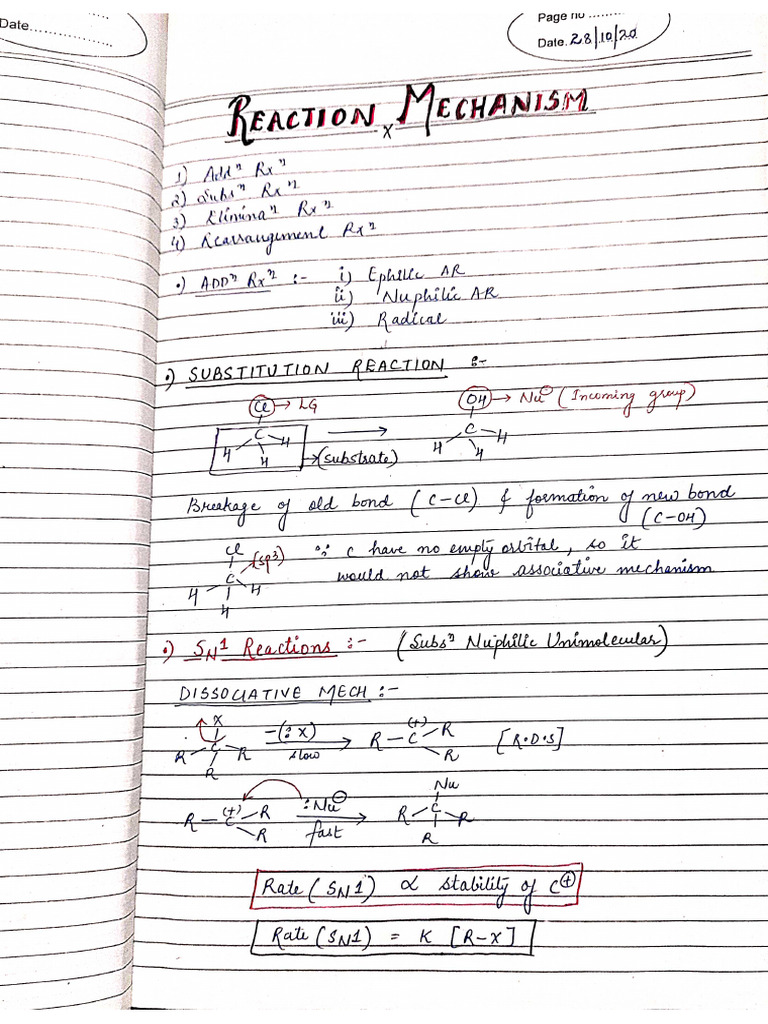 Date..................
Page no .........
Date. 28/10/20
REACTION MECHANISM
x
1) Addⁿ Rxⁿ
2) Subsⁿ Rxⁿ
3) Eliminaⁿ Rxⁿ
4) Rearrangement Rxⁿ
•) ADDⁿ Rxⁿ :- i) Ephilic AR
ii) Nuphilic AR
iii) Radical
•) SUBSTITUTION REACTION :-
Cl → LG
OH → Nu⊖ (Incoming group)
C
H H
H
→ (substrate)
C
H H
H
Breakage of old bond (C-Cl) & formation of new bond
(C-OH)
Cl
(sp3)
C
H H
H
∵ C have no empty orbital, so it
would not show associative mechanism
•) SN1 Reactions :- (Subsⁿ Nuphilic Unimolecular)
DISSOCIATIVE MECH :-
X
R C R
R
-(:X)
slow
(+)
R-C R
R
[R.D.S]
R-C R
(+)
R
:Nu⊖
fast
Nu
R C R
R
Rate (SN1) ∝ stability of C⊕
Rate (SN1) = K [R-X]